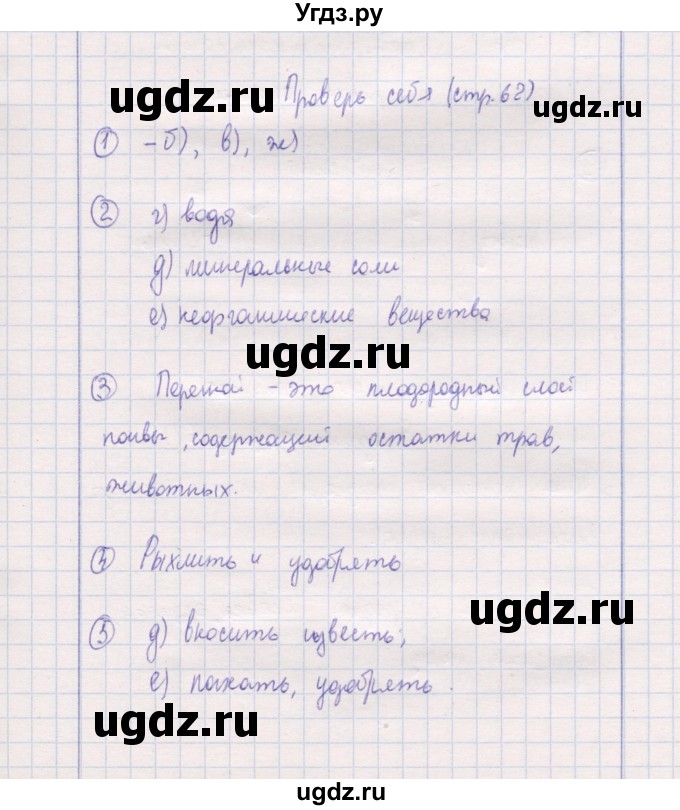 Угдз.ру
ugdz.ru
Проверь себя (стр.62)
① -б), в), ж)
ugdz.ru
② г) вода
д) минеральные соли
е) неорганические вещества
ugdz.ru
③ Перегной - это плодородный слой
почвы, содержащий остатки трав,
животных.
④ Рыхлить и удобрять
ugdz.ru
⑤ д) вносить известь;
е) пахать, удобрять.
ugdz.ru
ugdz.ru